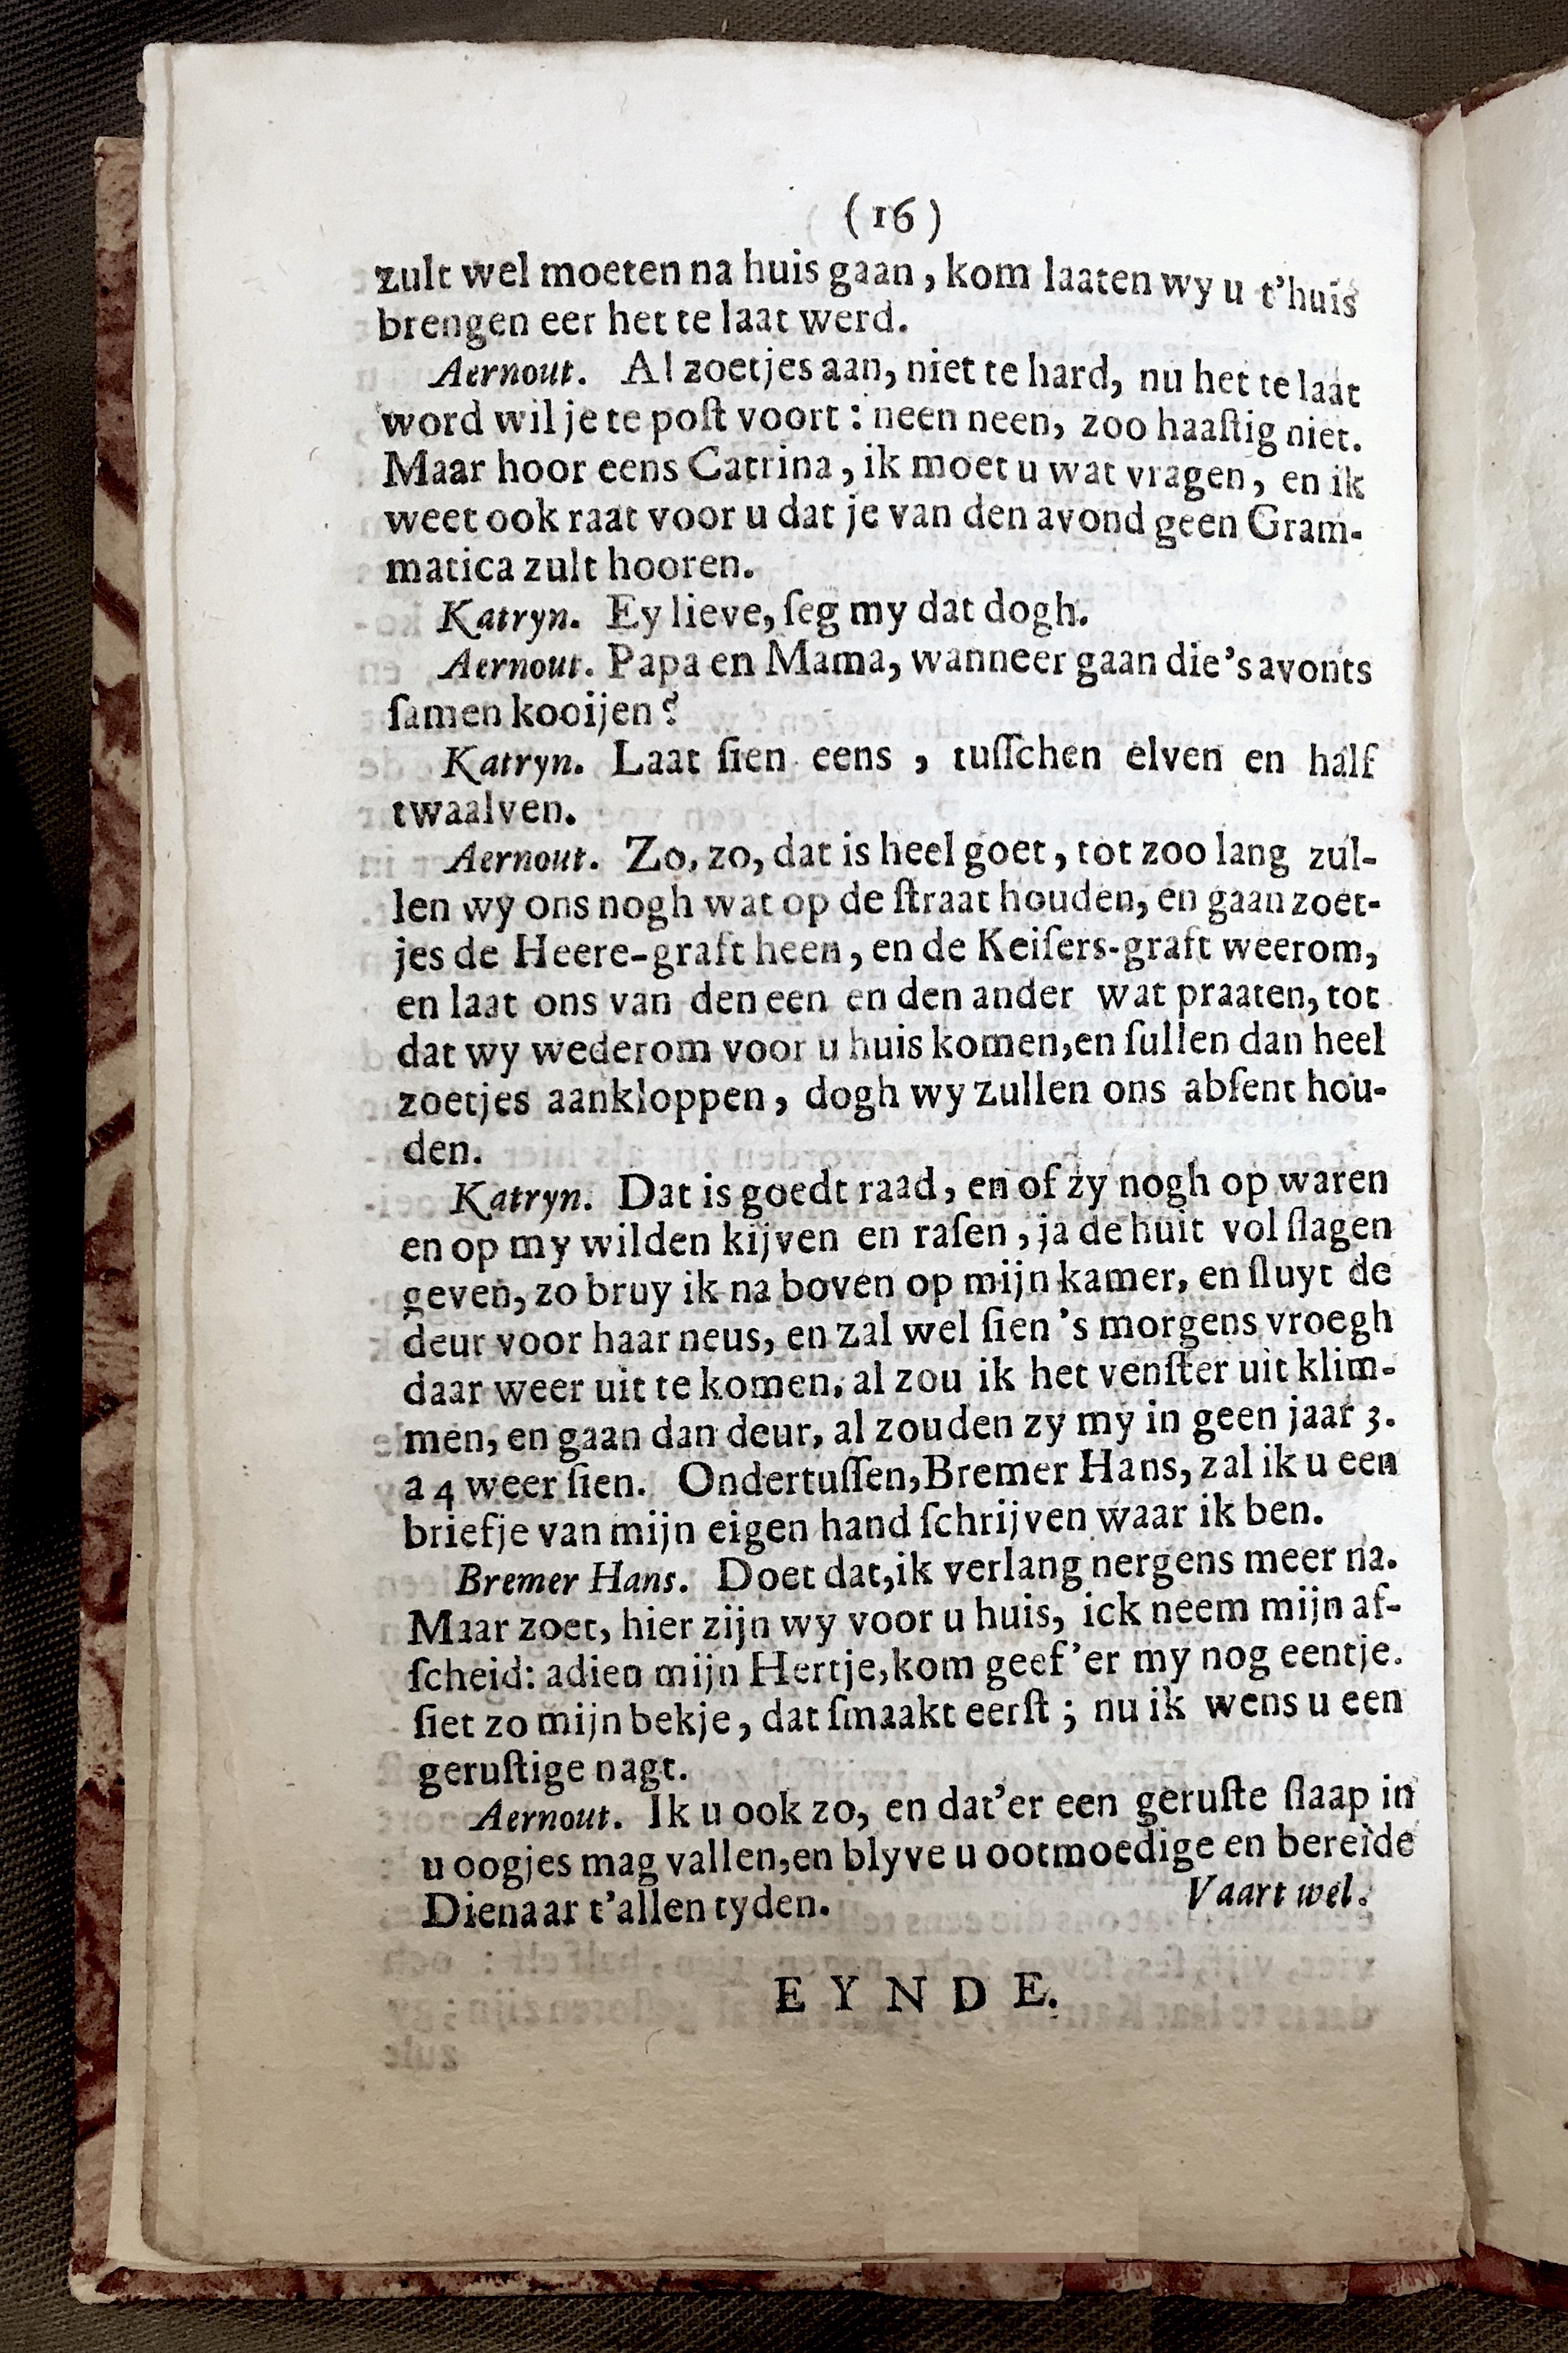 (16)
zult wel moeten na huis gaan, kom laaten wy u t'huis
brengen eer het te laat werd.
Aernout. Al zoetjes aan, niet te hard, nu het te laat
word wil je te poſt voort: neen neen, zoo haaſtig niet.
Maar hoor eens Catrina, ik moet u wat vragen, en ik
weet ook raat voor u dat je van den avond geen Gram-
matica zult hooren.
Katryn. Ey lieve, ſeg my dat dogh.
Aernout. Papa en Mama, wanneer gaan die 's avonts
ſamen kooijen?
Katryn. Laat ſien eens, tuſſchen elven en half
twaalven.
Aernout. Zo, zo, dat is heel goet, tot zoo lang zul-
len wy ons nogh wat op de ſtraat houden, en gaan zoet-
jes de Heere-graft heen, en de Keiſers-graft weerom,
en laat ons van den een en den ander wat praaten, tot
dat wy wederom voor u huis komen, en ſullen dan heel
zoetjes aankloppen, dogh wy zullen ons abſent hou-
den.
Katryn. Dat is goedt raad, en of zy nogh op waren
en op my wilden kijven en raſen, ja de huit vol ſlagen
geven, zo bruy ik na boven op mijn kamer, en ſluyt de
deur voor haar neus, en zal wel ſien 's morgens vroegh
daar weer uit te komen, al zou ik het venſter uit klim-
men, en gaan dan deur, al zouden zy my in geen jaar 3.
a 4 weer ſien. Ondertuſſen, Bremer Hans, zal ik u een
briefje van mijn eigen hand ſchrijven waar ik ben.
Bremer Hans. Doet dat, ik verlang nergens meer na.
Maar zoet, hier zijn wy voor u huis, ick neem mijn af-
ſcheid: adieu mijn Hertje, kom geef'er my nog eentje.
ſiet zo mijn bekje, dat ſmaakt eerſt; nu ik wens u een
geruſtige nagt.
Aernout. Ik u ook zo, en dat'er een geruſte ſlaap in
u oogjes mag vallen, en blyve u ootmoedige en bereide
Dienaar t'allen tyden. Vaart wel.
EYNDE.